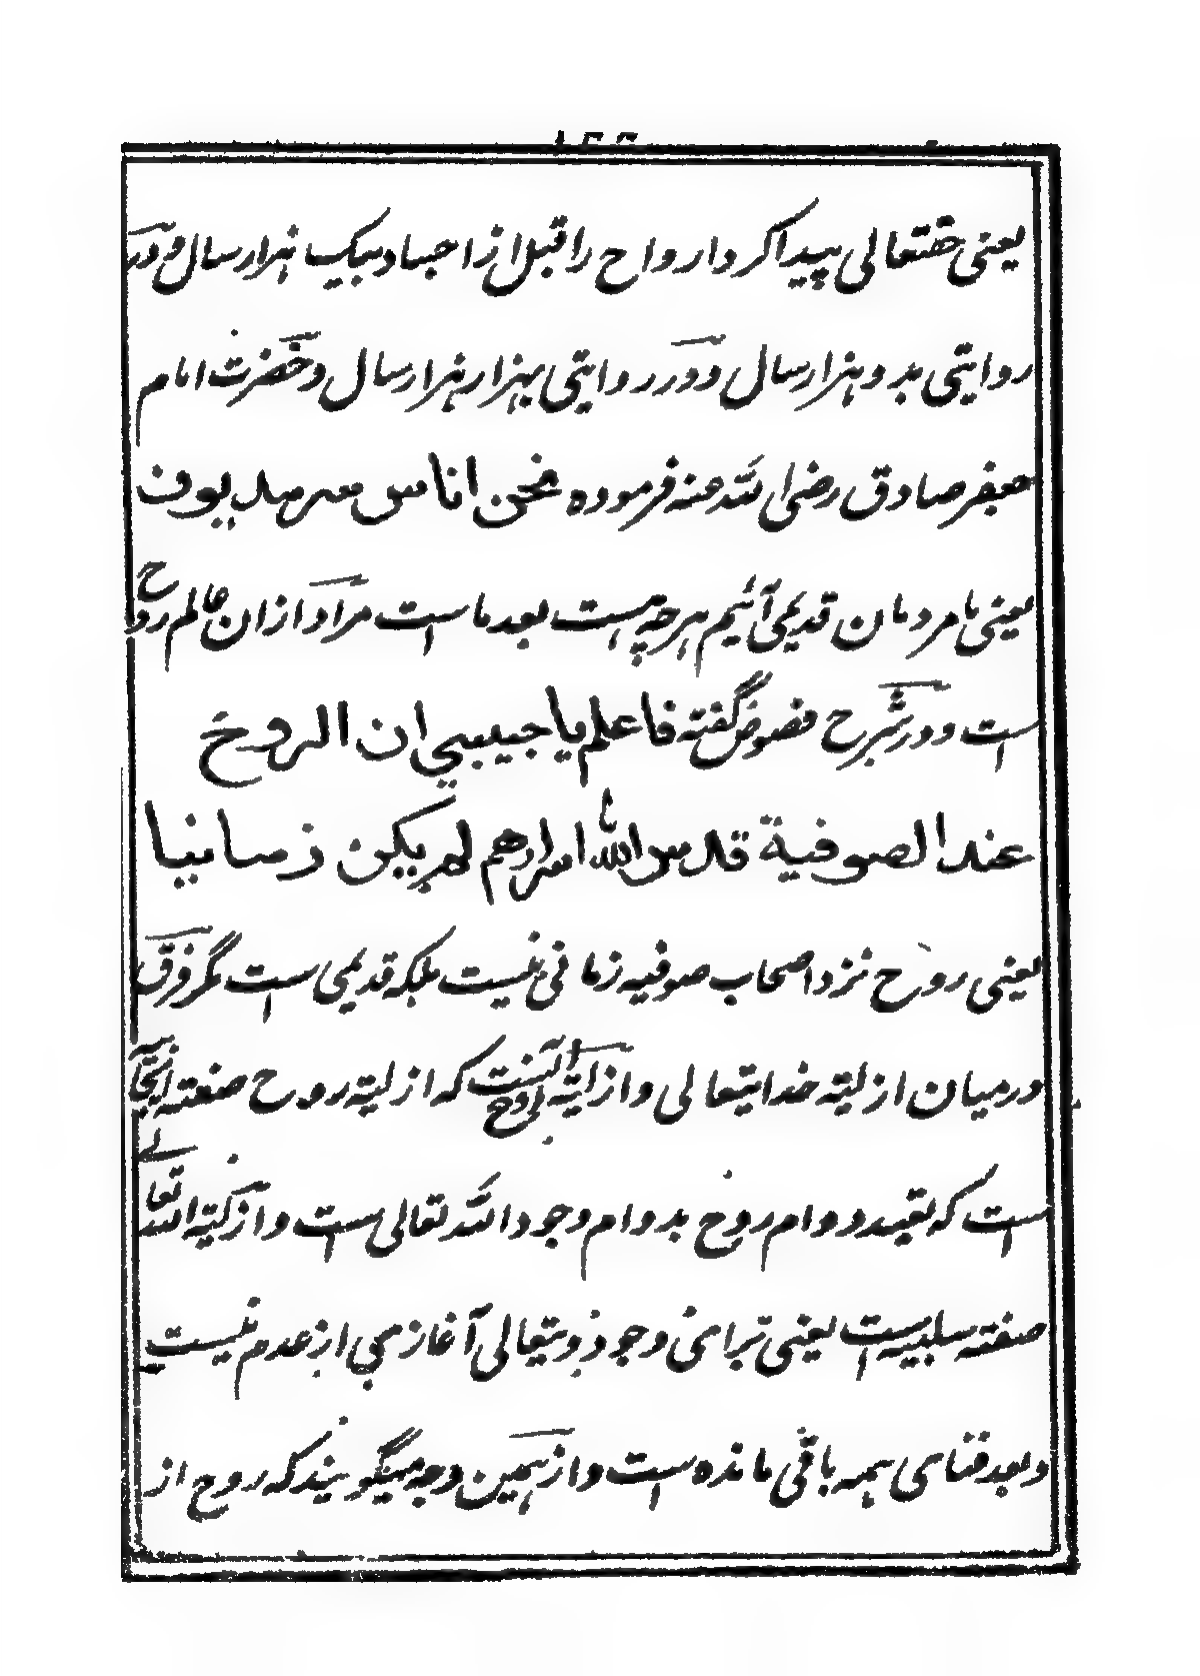 یعنی حقتعالی پیدا کرد ارواح را قبل از اجساد بیک هزار سال و در
روایتی بدو هزار سال و در روایتی بهزار هزار سال و حضرت امام
جعفر صادق رضی الله عنه فرموده نحن اناس سرمدیون
یعنی ما مردمان قدیمی آئیم هرچه هست بعد ما است مراد ازان عالم روح
است و در شرح فصوص گفته فاعلم یا حبیبی ان الروح
عند الصوفیة قدس الله اسرارهم لم یکن زمانیا
یعنی روح نزد اصحاب صوفیه زمانی نیست بلکه قدیمی است مگر فرق
درمیان ازلیته خدایتعالی و ازلیته الروح اینست که ازلیته روح صفته
است که تقید دوام روح بدوام وجود الله تعالی است و ازلیته الله تعالی
صفته سلبیه است یعنی برای وجود ویتعالی آغازمی از عدم نیست
و بعد فنای همه باقی مانده است و ازهمین وجه میگویند که روح از